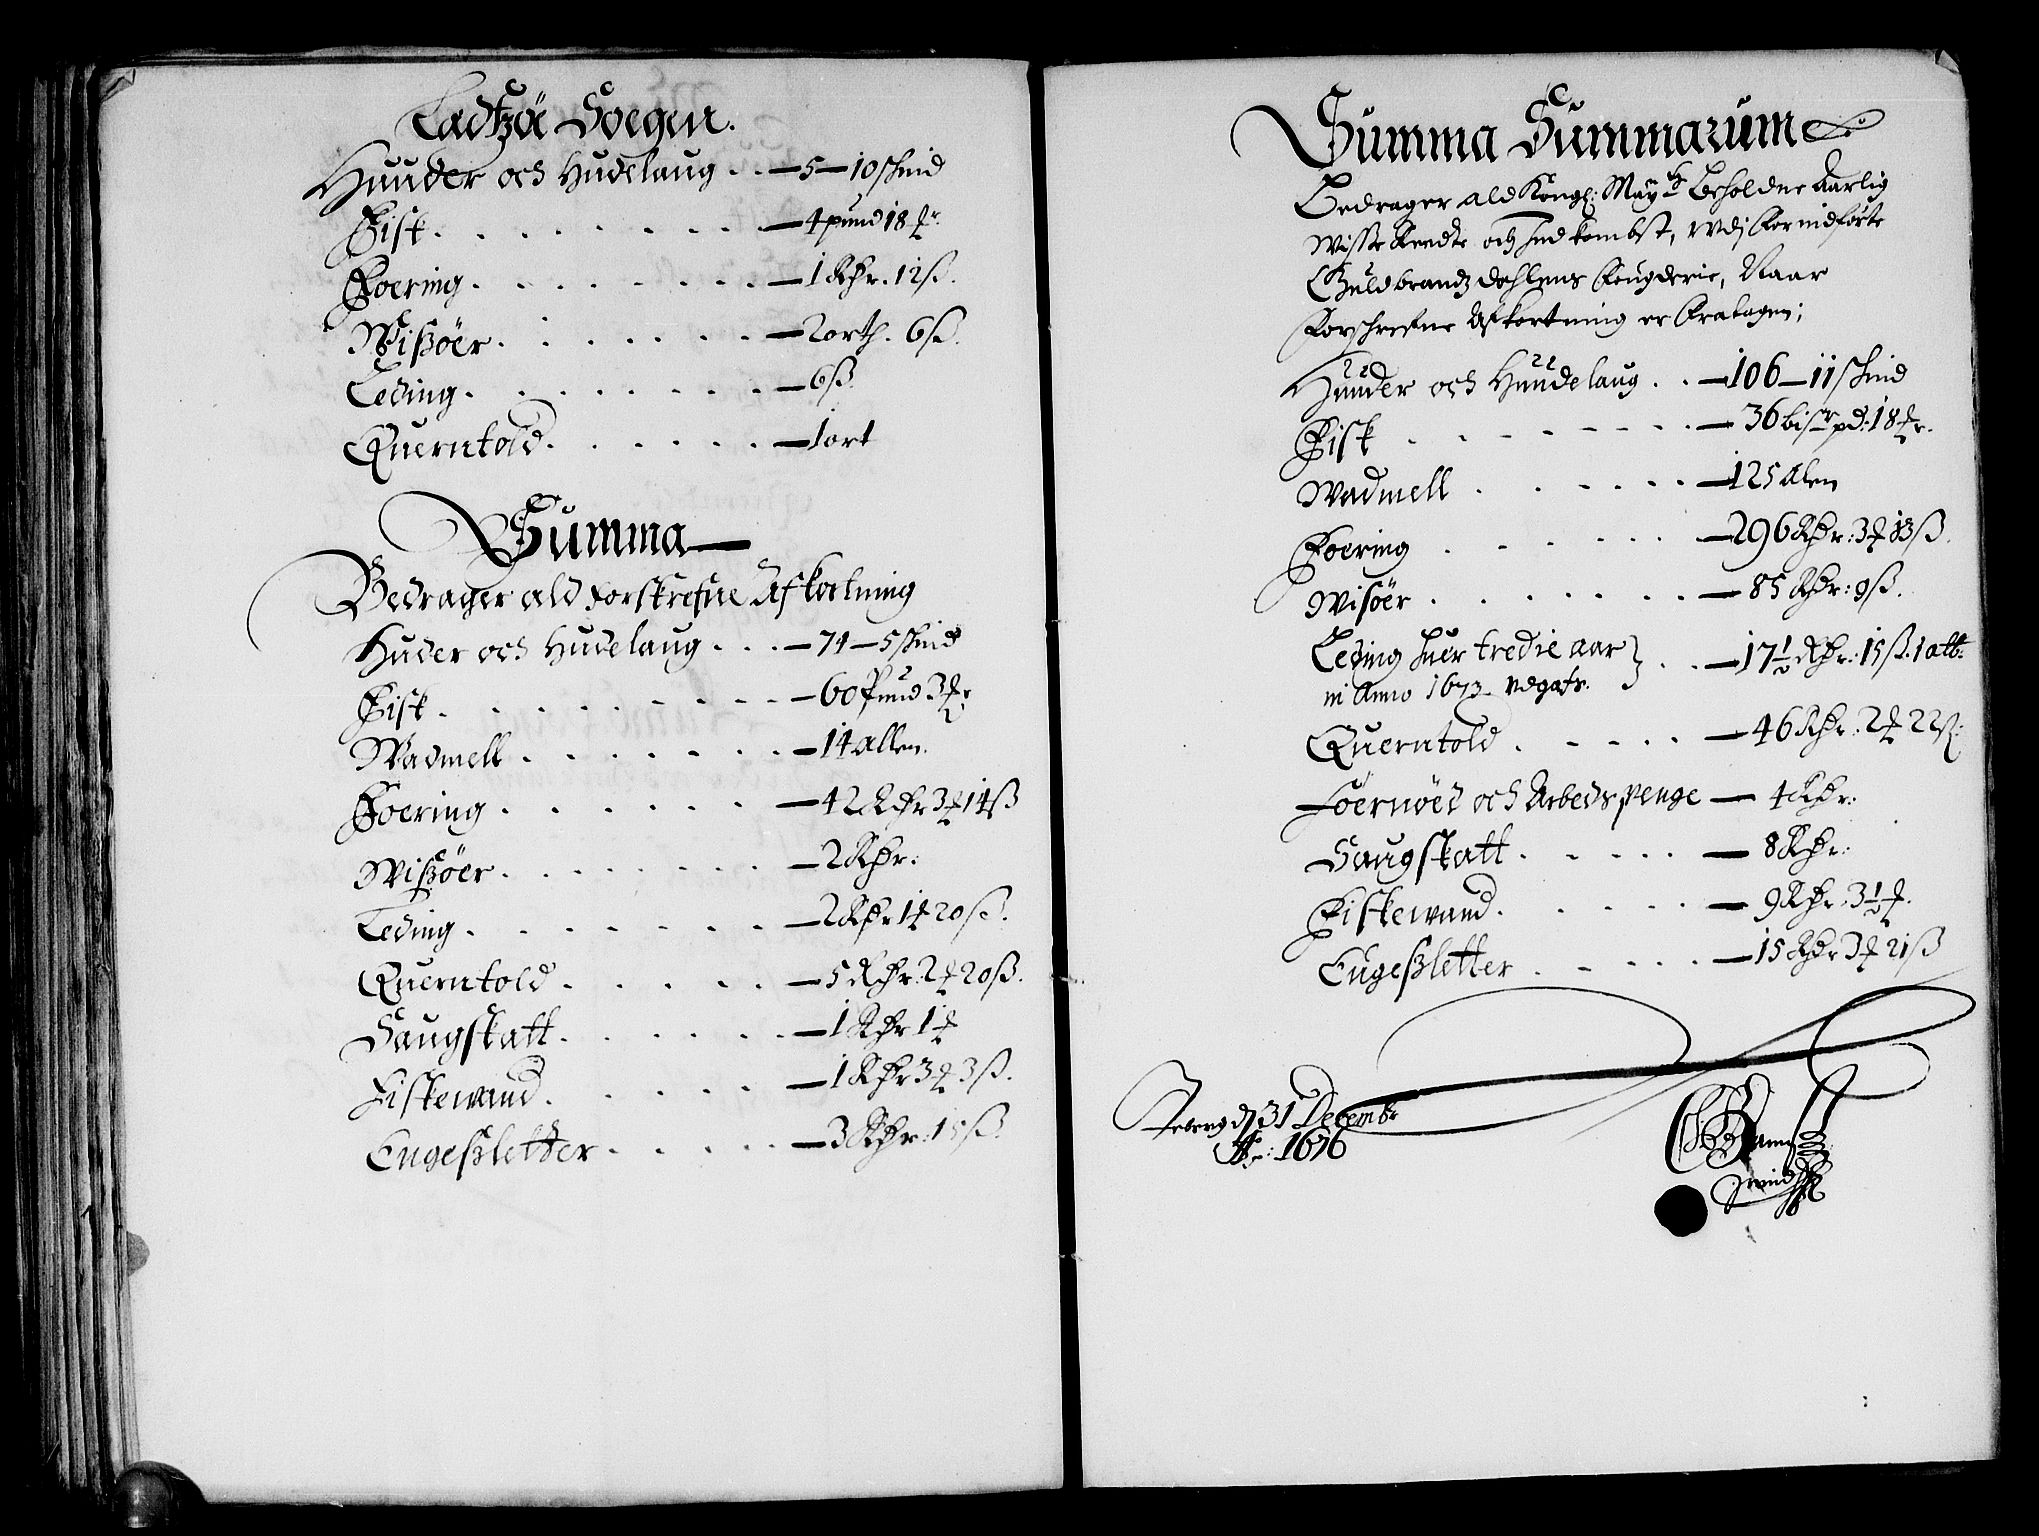 Ladtzöe Soegen.
Huuder och Hudelaug . . — 5 — 10 skind
Fisk . . . . . . . — 4 pund 18 ₰r.
Foering . . . . . . . — 1 Rdr. 12 ß.
Wißöer . . . . . . — 2 orth. 6 ß.
Leding . . . . . . . — 6 ß.
Querntold . . . . . — 1 ort
Summa
Bedrager ald forskrefne Afkortning
Huder och Hudelaug . . . — 74 — 5 skind
Fisk . . . . . . . — 60 Pund 3 ₰r.
Wadmell . . . . . . — 14 allen.
Foering . . . . . . — 42 Rdr 3 ₰ 14 ß
Wißöer . . . . . . . — 2 Rdr:
Leding . . . . . . . — 2 Rdr 1 ₰ 20 ß.
Querntold . . . . . — 5 Rdr. 2 ₰ 20 ß.
Saugskatt . . . . . . — 1 Rdr 1 ₰
Fiskewand . . . . . — 1 Rdr 3 ₰ 3 ß.
Engeßletter . . . . . — 3 Rdr: 15 ß.
Summa Summarum
Bedrager ald Kongl: May:tz Beholdne Aarlig
Wisse Rendte och Indkombst, udj forindførte
Guldbrandzdahlens fougderie, Naar
forschrefne Afkortning er fratagen;
Huuder och Huudelaug . . — 106 — 11 skind
Fisk . . . . . . . — 36 bisr pd: 18 ₰r.
Wadmell . . . . . . — 125 Alen
Foering . . . . . . — 296 Rdr: 3 ₰ 13 ß.
Wisöer . . . . . . . — 85 Rdr: 9 ß.
Leding huer tredie aar } . . — 17½ Rdr: 15 ß. 1 alb:
in Anno 1673 udgafs.
Querntold . . . . . — 46 Rdr: 2 ₰ 22 ß:
Foernöed och Arbeds penge — 4 Rdr:
Saugskatt . . . . . — 8 Rdr:
Fiskewand . . . . . — 9 Rdr: 3½ ₰.
Engeßletter . . . . . — 15 Rdr 3 ₰ 21 ß
d 31 Decembr
Ao: 1676